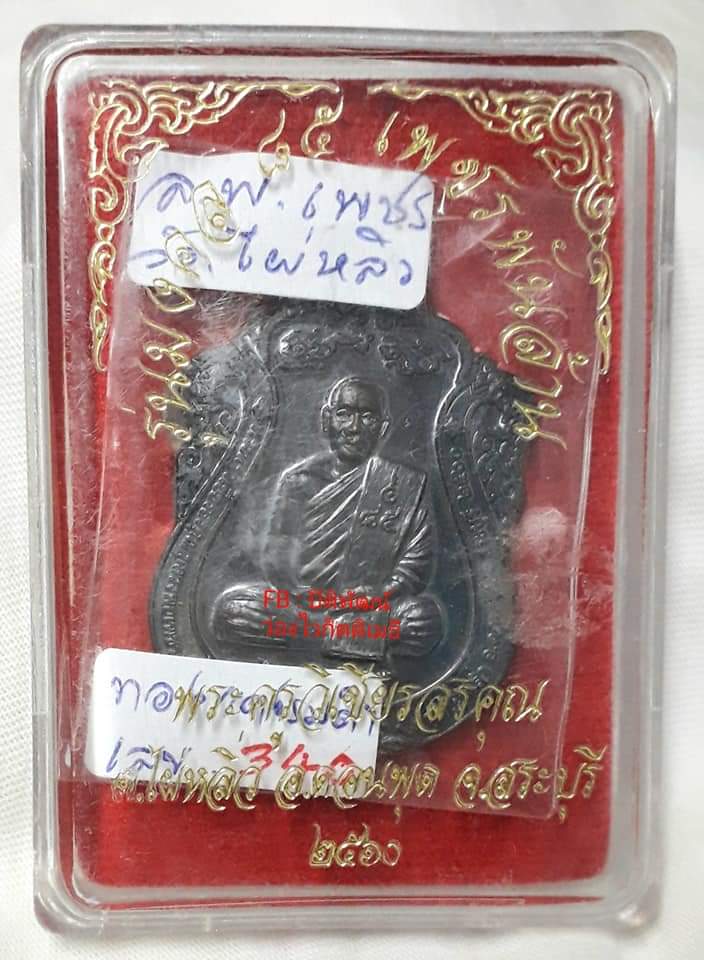 รุ่นมงคล ๘๕ เพชรพันล้าน
ล.พ. เพชร
วัดไผ่หลิ่ว
FB : ปิติพัฒน์
ว่องไวกิตติเมธี
พระครูวิเชียรสรคุณ
เลข
ต.ไผ่หลิ่ว อ.ดอนพุด จ.สระบุรี
๒๕๖๐